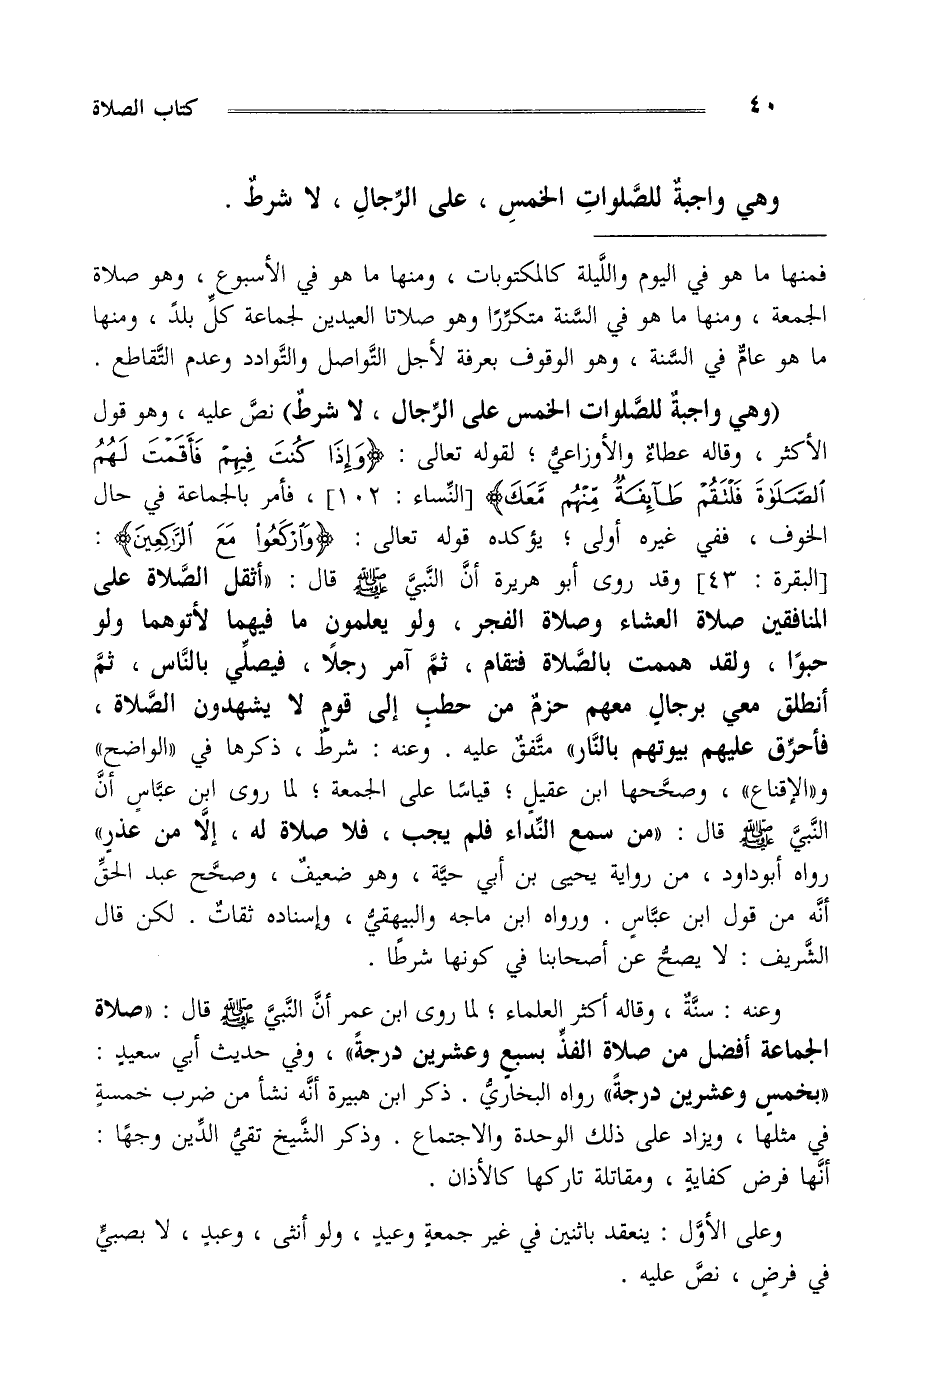 ٤٠ كتاب الصلاة
وهي واجبةٌ للصَّلواتِ الخمسِ ، على الرِّجالِ ، لا شرطٌ .
فمنها ما هو في اليوم واللَّيلة كالمكتوبات ، ومنها ما هو في الأسبوع ، وهو صلاة
الجمعة ، ومنها ما هو في السَّنة متكرِّرًا وهو صلاتا العيدين لجماعة كلِّ بلدً ، ومنها
ما هو عامٌّ في السَّنة ، وهو الوقوف بعرفة لأجل التَّواصل والتَّوادد وعدم التَّقاطع .
(وهي واجبةٌ للصَّلوات الخمس على الرِّجال ، لا شرطٌ) نصَّ عليه ، وهو قول
الأكثر ، وقاله عطاءٌ والأوزاعيُّ ؛ لقوله تعالى : ﴿وَإِذَا كُنتَ فِيهِمْ فَأَقَمْتَ لَهُمُ
ٱلصَّلَوٰةَ فَلْتَقُمْ طَآئِفَةٌ مِّنْهُم مَّعَكَ﴾ [النِّساء : ١٠٢] ، فأمر بالجماعة في حال
الخوف ، ففي غيره أولى ؛ يؤكده قوله تعالى : ﴿وَٱرْكَعُوا۟ مَعَ ٱلرَّٰكِعِينَ﴾ :
[البقرة : ٤٣] وقد روى أبو هريرة أنَّ النَّبيَّ ﷺ قال : «أثقل الصَّلاة على
المنافقين صلاة العشاء وصلاة الفجر ، ولو يعلمون ما فيهما لأتوهما ولو
حبوًا ، ولقد هممت بالصَّلاة فتقام ، ثمَّ آمر رجلًا ، فيصلِّي بالنَّاس ، ثمَّ
أنطلق معي برجالٍ معهم حزمٌ من حطبٍ إلى قومٍ لا يشهدون الصَّلاة ،
فأحرِّق عليهم بيوتهم بالنَّار» متَّفقٌ عليه . وعنه : شرطٌ ، ذكرها في «الواضح»
و«الإقناع» ، وصحَّحها ابن عقيلٍ ؛ قياسًا على الجمعة ؛ لما روى ابن عبَّاسٍ أنَّ
النَّبيَّ ﷺ قال : «من سمع النِّداء فلم يجب ، فلا صلاة له ، إلَّا من عذرٍ»
رواه أبوداود ، من رواية يحيى بن أبي حيَّة ، وهو ضعيفٌ ، وصحَّح عبد الحقِّ
أنَّه من قول ابن عبَّاسٍ . ورواه ابن ماجه والبيهقيُّ ، وإسناده ثقاتٌ . لكن قال
الشَّريف : لا يصحُّ عن أصحابنا في كونها شرطًا .
وعنه : سنَّةٌ ، وقاله أكثر العلماء ؛ لما روى ابن عمر أنَّ النَّبيَّ ﷺ قال : «صلاة
الجماعة أفضل من صلاة الفذِّ بسبعٍ وعشرين درجةً» ، وفي حديث أبي سعيدٍ :
«بخمسٍ وعشرين درجةً» رواه البخاريُّ . ذكر ابن هبيرة أنَّه نشأ من ضرب خمسةٍ
في مثلها ، ويزاد على ذلك الوحدة والاجتماع . وذكر الشَّيخ تقيُّ الدِّين وجهًا :
أنَّها فرض كفايةٍ ، ومقاتلة تاركها كالأذان .
وعلى الأوَّل : ينعقد باثنين في غير جمعةٍ وعيدٍ ، ولو أنثى ، وعبدٍ ، لا بصبيٍّ
في فرضٍ ، نصَّ عليه .